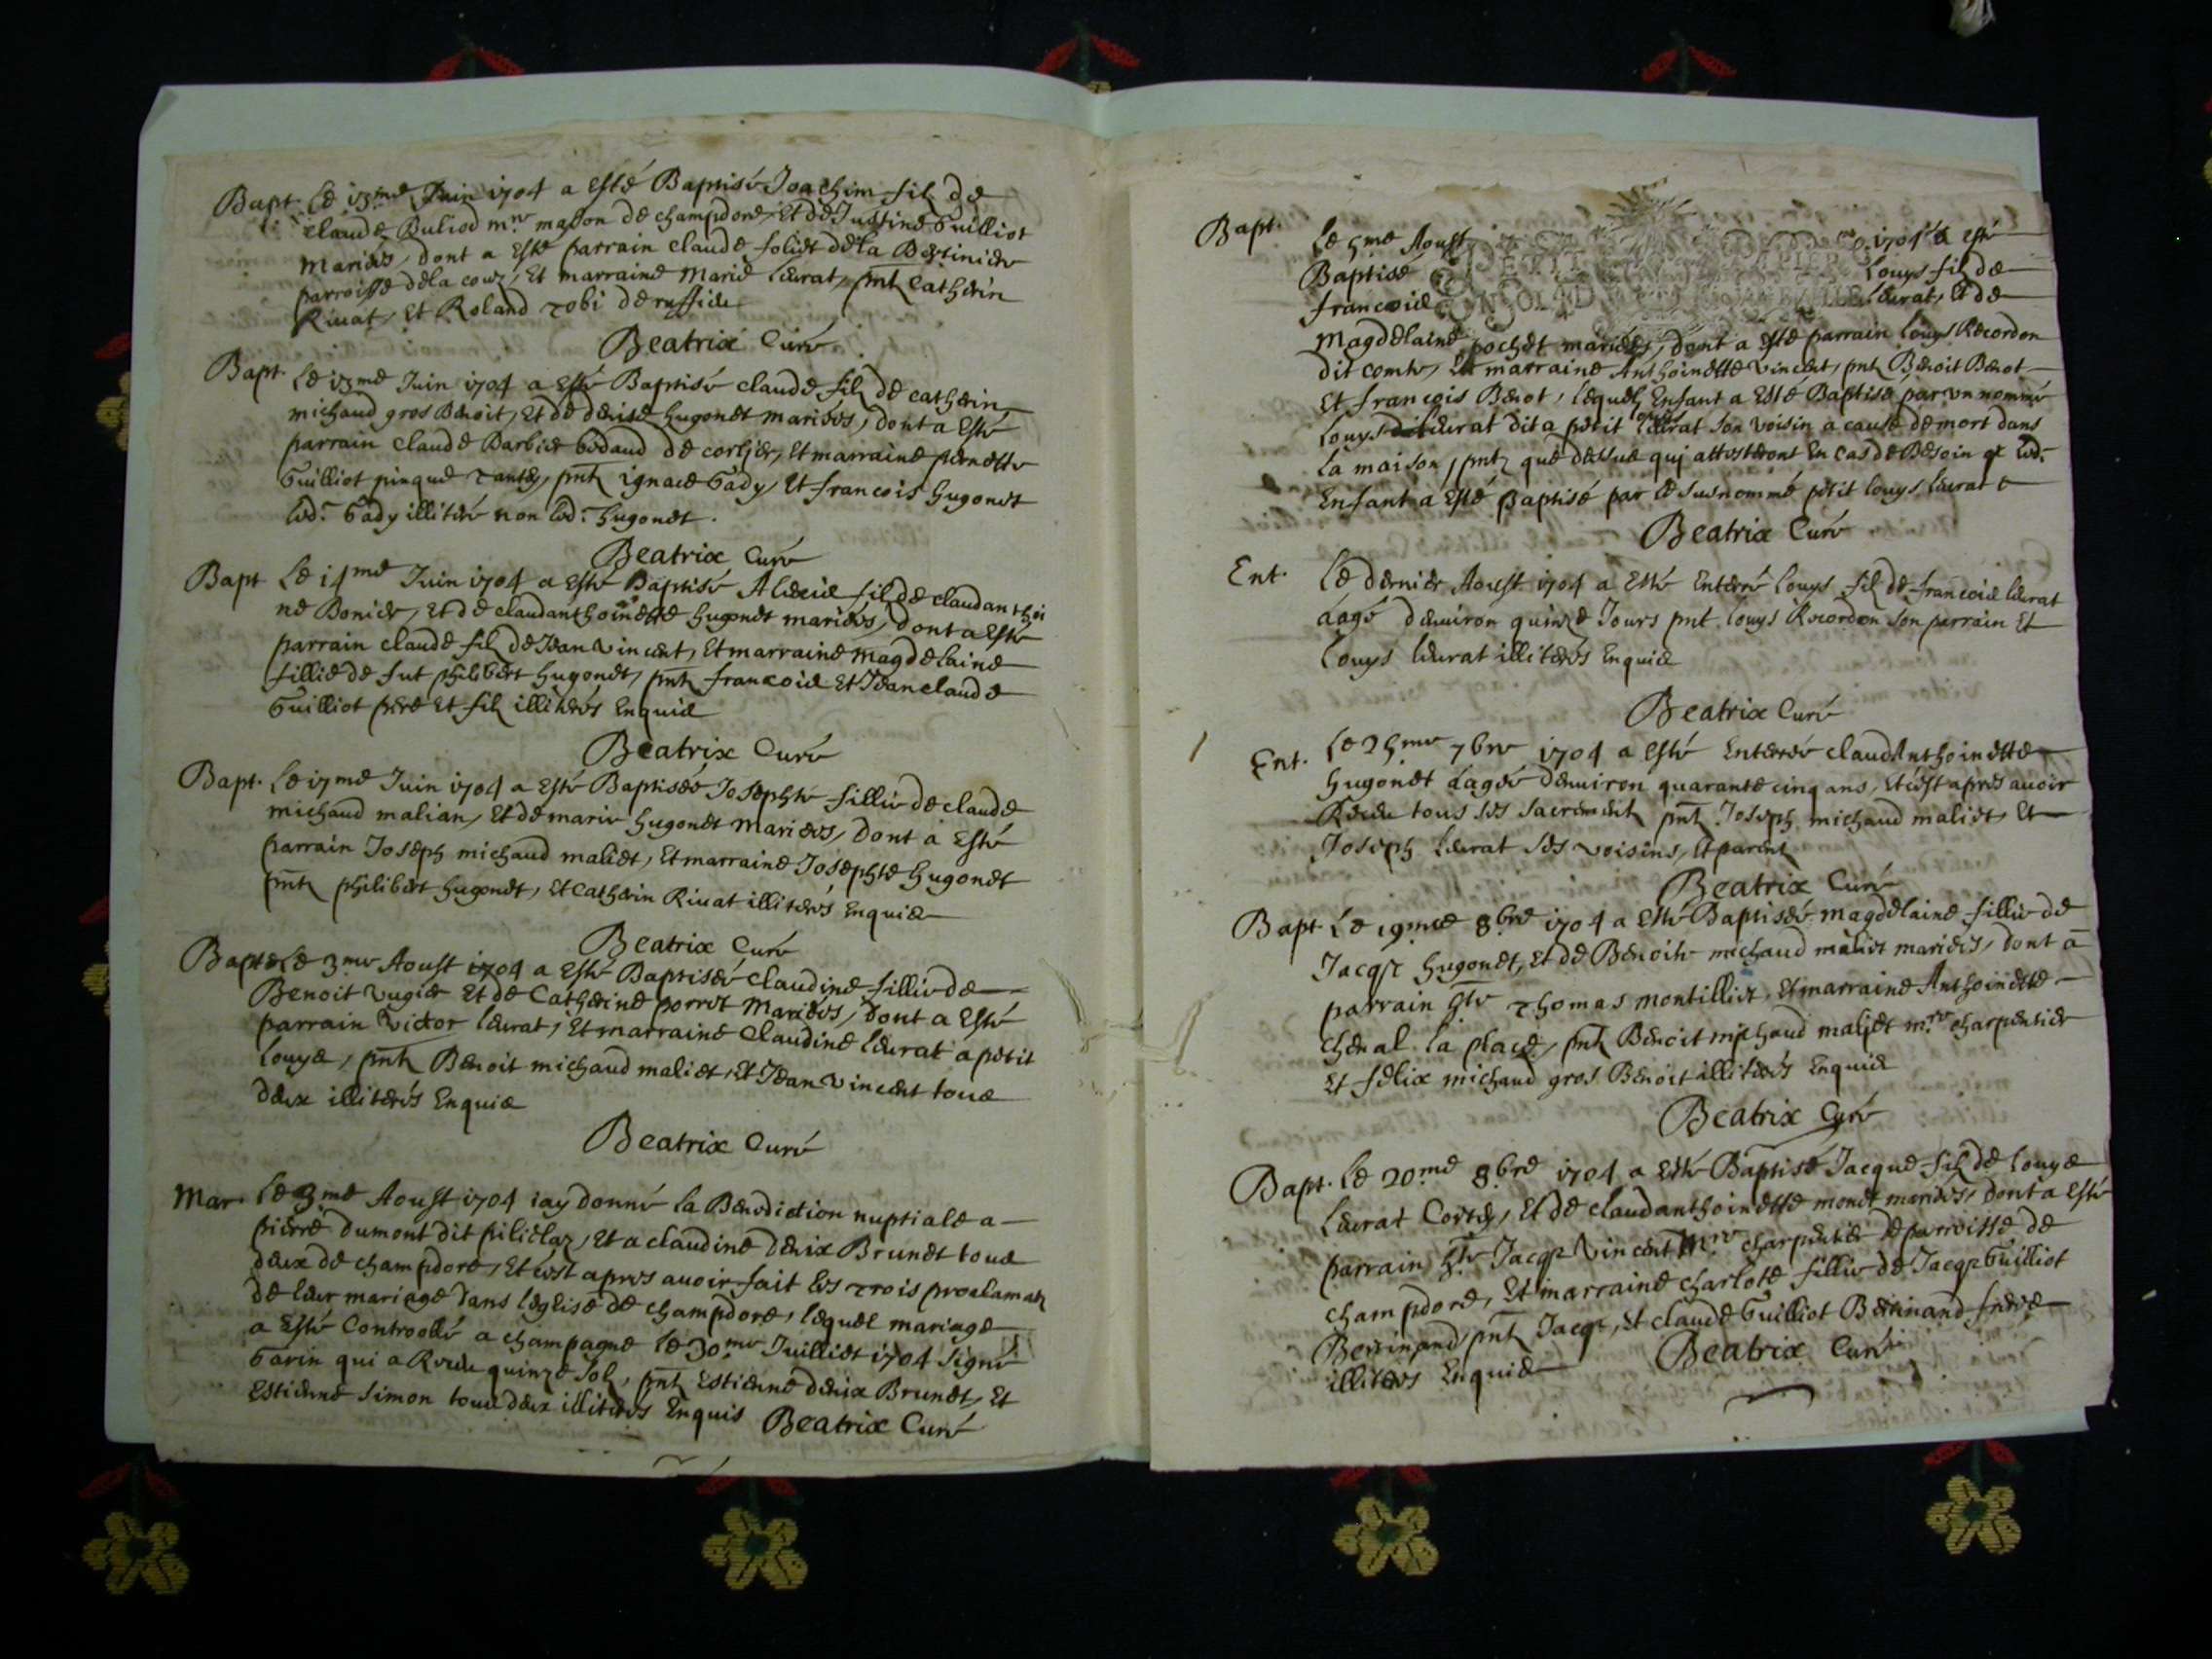 Bapt. Le 13.me Juin 1704 a esté Baptisé Joachim fils de
claude Buliod m.re masson de champdore, Et de Justine Guilliot
Mariés, dont a esté parrain claude foliet de la
parroisse de la coux, Et marraine Marie leurat, pnts Catherin
Rivat, Et Roland tobi de ruffieu
Beatrix Curé
Bapt. Le 13.me Juin 1704 a esté Baptisé claude fils de catherin
michaud gros Benoit, Et de denise hugonet mariées, dont a esté
parrain claude Barbier bodaud de corlier, Et marraine pernette
Guilliot pinque tantes, pnts ignace Gady, Et francois hugonet
led. Gady illiteré non led. hugonet.
Beatrix Curé
Bapt Le 14.me Juin 1704 a esté Baptisé Alexis fils de claudanthoi
ne Bonier, Et de claudanthoinette hugonet mariés, dont a esté
parrain claude fils de Jean vincent, Et marraine Magdelaine
fillie de fut philibert hugonet, pnts francois Et Jean claude
Guilliot pere et fils illiterés Enquis
Beatrix Curé
Bapt. Le 17.me Juin 1704 a esté Baptisée Josephte fillie de claude
michaud malian, Et de marie hugonet Mariés, dont a esté
parrain Joseph michaud maliet, Et marraine Josephte hugonet
pnts philibert hugonet, Et Catherin Rivat illiterés Enquis
Beatrix Curé
Bapt Le 3.me Aoust 1704 a esté Baptisée Claudine fillie de
Benoit vugier Et de Catherine porret Mariés, dont a esté
parrain victor leurat, Et marraine Claudine leurat a petit
Louys, pnts Benoit michaud maliet, Et Jean vincent tous
deux illiterés Enquis
Beatrix Curé
Mar. Le 3.me Aoust 1704 iay donné la Benediction nuptiale a
pierre dumont dit pilielaz, Et a claudine denix Brunet tous
deux de champdore, Et cest apres avoir fait les trois proclamats
de leur mariage dans leglise de champdore, lequel mariage
a esté Controollé a champagne le 30.me Juilliet 1704 signé
Garin qui a Receu quinze sols, pnts Estienne denix Brunet, Et
Estienne Simon tous deux illiterés Enquis Beatrix Curé
Bapt. Le 5.me Aoust 1704 a esté
Baptisé Louys fils de
francois leurat, Et de
PETIT PAPIER
Magdelaine pochet mariées, dont a esté parrain Louys Recordon
dit comte, Et marraine Anthoinette vincent, pnts Benoit Benot
Et francois Benot, lequel Enfant a esté Baptisé par un nommé
Louys leurat dit a petit louys leurat son voisin a cause de mort dans
la maison, pnts que dessus qui attesteront En cas de Besoin q led.
Enfant a esté Baptisé par le susnommé petit louys leurat
Beatrix Curé
Ent. Le dernier Aoust 1704 a esté Enterré Louys fils de francois leurat
dagé denviron quinze Jours pnt Louys Recordon son parrain Et
Louys leurat illiterés Enquis
Beatrix Curé
Ent. Le 25.me 7bre 1704 a esté Enterrée claudAnthoinette
hugonet dagée denviron quarante cinq ans, Et cest apres avoir
Receu tous ses sacrements pnts Joseph michaud maliet, Et
Joseph leurat ses voisins, Et parents
Beatrix Curé
Bapt Le 19.me 8bre 1704 a esté Baptisée Magdelaine fillie de
Jacqs hugonet, Et de Benoite michaud maliet mariés, dont a
parrain hte Thomas montilliet, Et marraine Anthoinette
cheval la place, pnts Benoit michaud maliet m.re charpentier
Et felix michaud gros Benoit illiterés Enquis
Beatrix Curé
Bapt. Le 20.me 8bre 1704 a esté Baptisé Jacque fils de Louys
leurat Cortes, Et de claudanthoinette monet mariés, dont a esté
parrain hte Jacqs vincent M.re charpentier de parroisse de
champdore, Et marraine charlote fillie de Jacqs Guilliot
Bertinand, pnts Jacqs, Et claude Guilliot Bertinand freres
illiterés Enquis Beatrix Curé